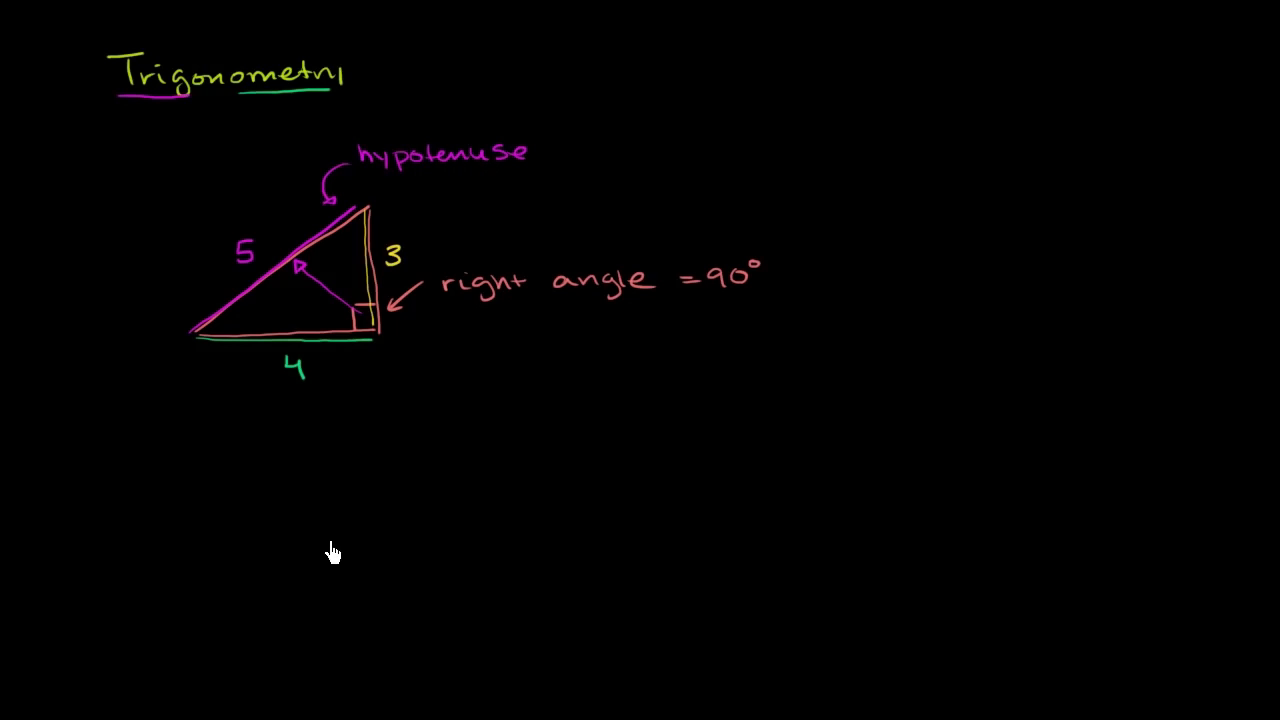 Trigonometry
hypotenuse
5
3
right angle = 90°
4